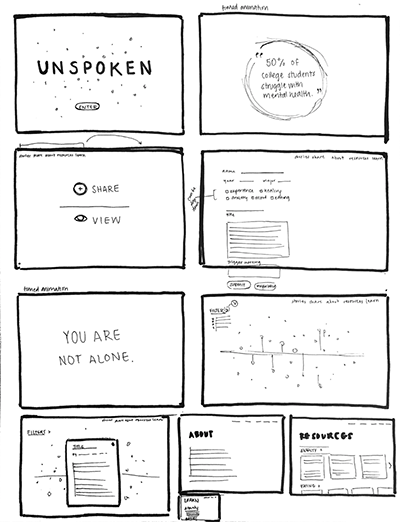 timed animation
UNSPOKEN
ENTER
" 50% of
college students
struggle with
mental health. "
stories share about resources learn
SHARE
VIEW
stories share about resources learn
name
year major
experience healing
anxiety eating
title
trigger warning
submit
timed animation
YOU ARE
NOT ALONE.
stories share about resources learn
FILTER
stories share about resources learn
FILTERS >
TITLE
ABOUT
LEARN
RESOURCES
ANXIETY >
EATING >